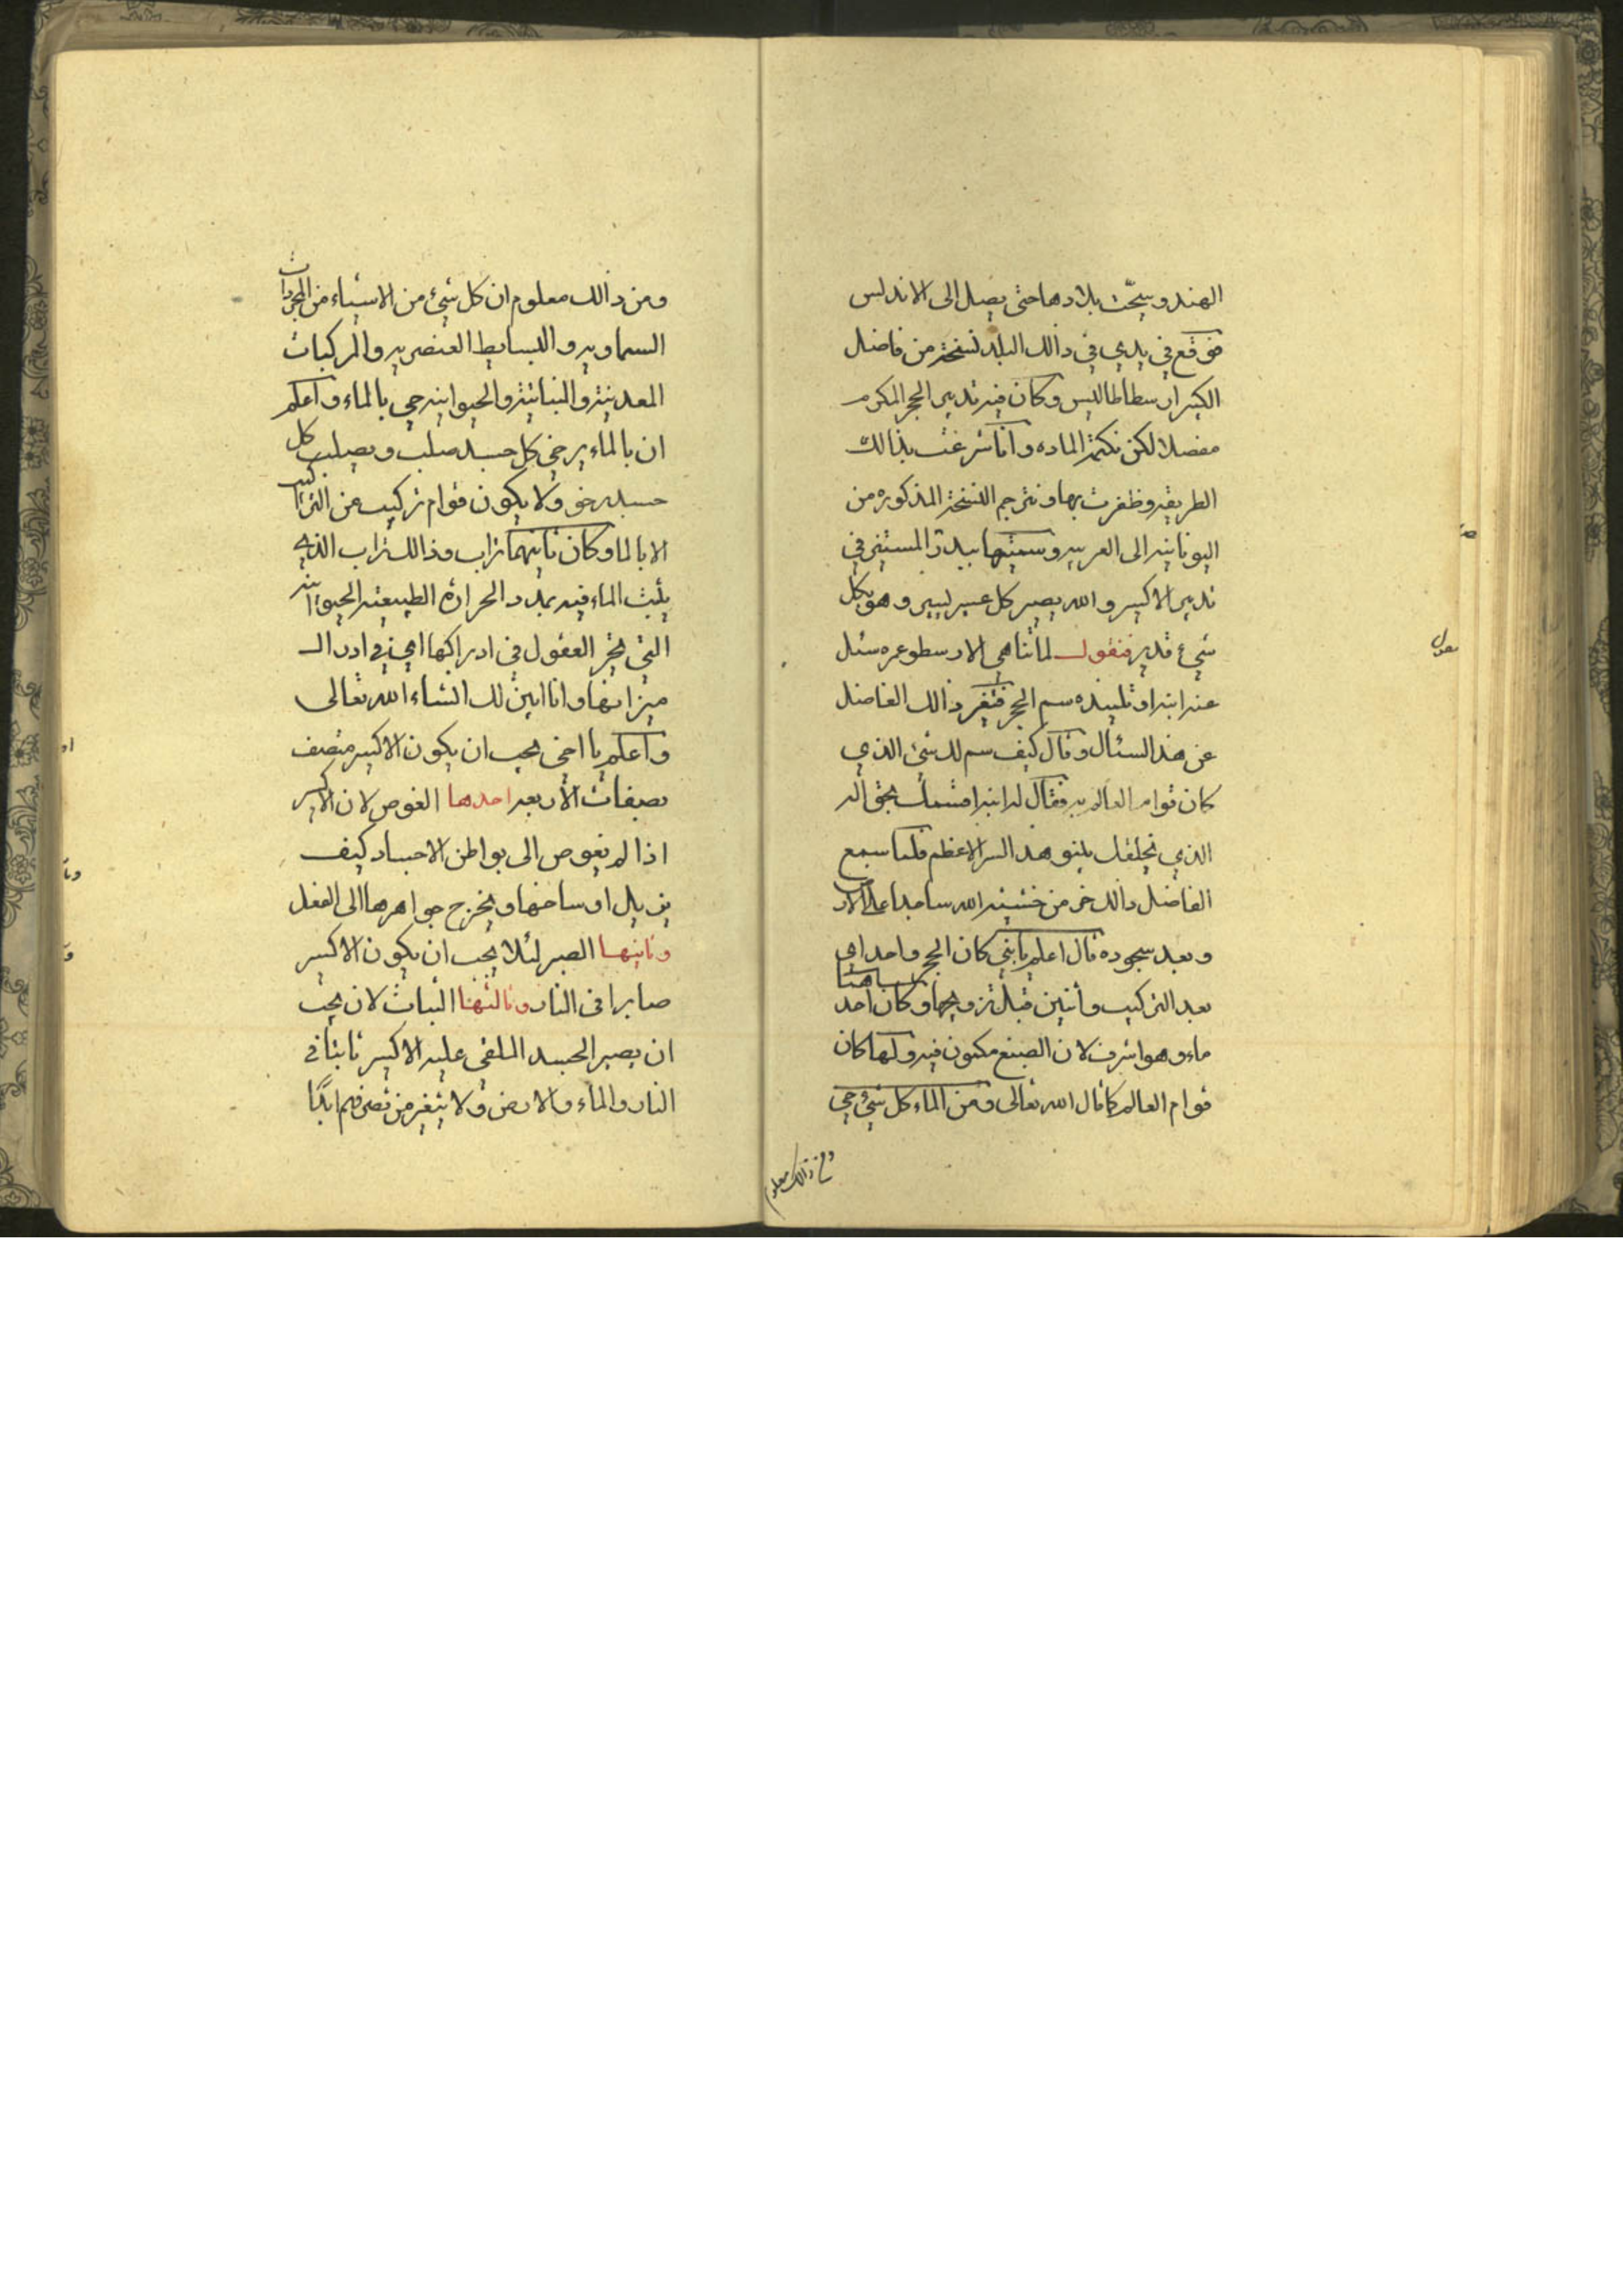 الهند و سيحّت بلادها حتى يصل الى الاندلس
فوقع في يدي في ذالك البلد نسخة من فاضل
الكبير ارسطاطاليس و كان فيه تدبير الحجر المكرم
مفصلا لكن نكتم الماده و انا شرغت بذالك
الطريقه و ظفرت بها و نترجم النسخة المذكوره من
اليونانيه الى العربيه و سميتها ببدر المستنير في
تدبير الاكسير و الله يصير كل عسير يسير و هو بكل
شيء قدير فنقول لما تناهى الارسطو عمره سئل
عنه ابنه او تلميذه سم الحجر فتغير ذالك الفاضل
عن هذ السئال و قال كيف سم لك شئ الذي
كان قوام العالم به فقال له ابنه اقتسمك بحق اله
الذي خلقك بنيو هذ السر الاعظم فلما سمع
الفاضل ذالك خر من خشيته الله ساجدا على الارض
و بعد سجوده قال اعلم يا بني كان الحجر واحدا
بعد التركيب و اثنين قبل تزويجها و كان احد
ماء و هو اشرف لان الصبغ مكنون فيه و لها كان
قوام العالم كما قال الله تعالى و من الماء كل شئ حي
و من ذالك معلوم
و من ذالك معلوم ان كل شئ من الاشياء من المجردات
السماويه و البسايط العنصريه و المركبات
المعدنيه و النباتيه و الحيوانيه حي بالماء و اعلم
ان بالماء يرخي كل جسد صلب و يصلب كل
جسد رخو و لا يكون قوام تركيب عن التراكيب
الا بالماء و كان ثانيهما تراب و ذالك تراب الذي
يلبث الماء فيه بمدد الحرارة الطبيعيه الحيوانيه
التي تحير العقول في ادراكها اي في ادراك
ميزانها و انا ابين لك انشاء الله تعالى
و اعلم يا اخي يجب ان يكون الاكسير متصف
بصفات الأربعه احدها الغوص لان الاكسير
اذا لم يغوص الى بواطن الاجساد كيف
يزيل اوساخها و يخرج جواهرها الى الفعل
و ثانيها الصبر لئلا يجب ان يكون الاكسير
صابرا في النار و ثالثها الثبات لان يجب
ان يصير الجسد الملقى عليه الاكسير ثابتا في
النار و الماء و الارض و لا يتغير من تصرفهم ابدًا